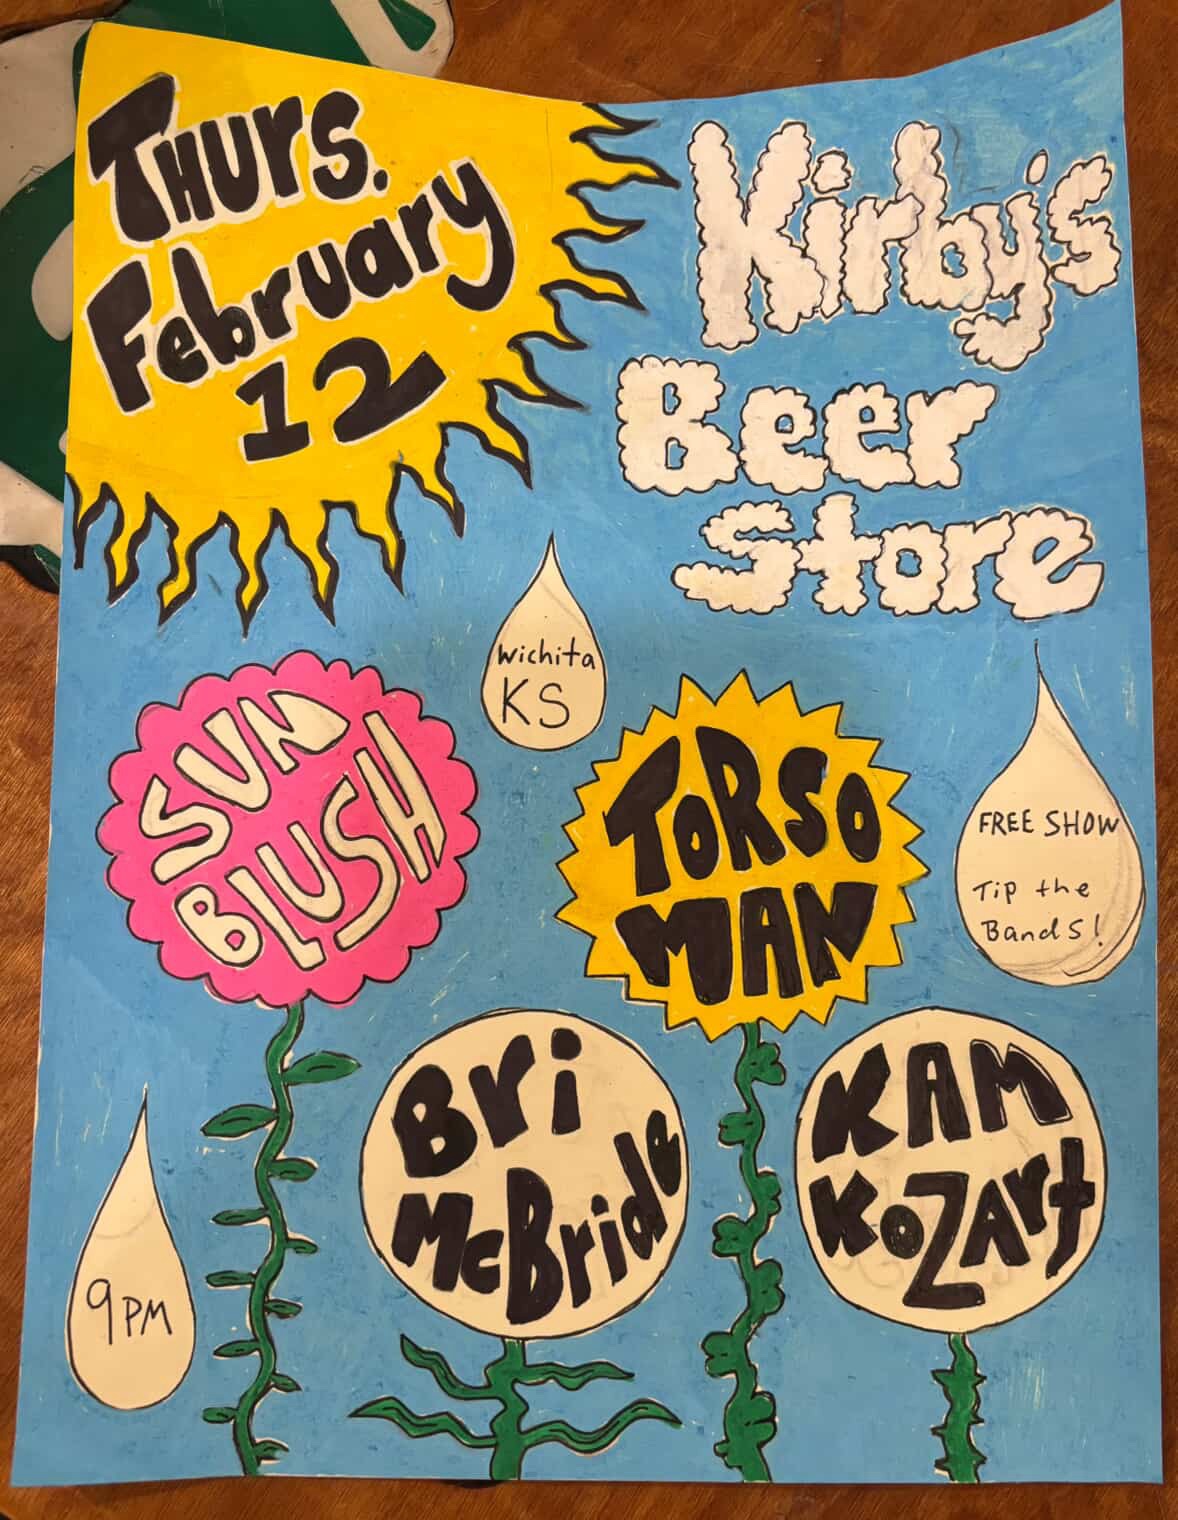 Thurs.
February
12
Kirby's
Beer
Store
Wichita
KS
SUN
BLUSH
TORSO
MAN
FREE SHOW
Tip the
Bands!
Bri
McBride
KAM
KOZArt
9PM